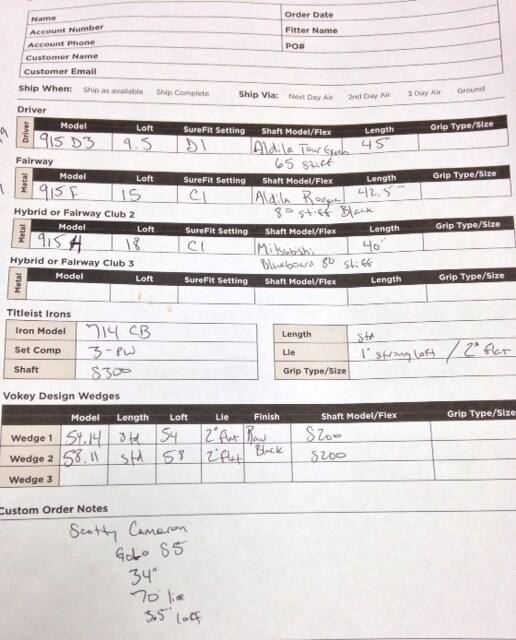 Name
Order Date
Account Number
Fitter Name
Account Phone
PO#
Customer Name
Customer Email
Ship When: Ship as available Ship Complete Ship Via: Next Day Air 2nd Day Air 3 Day Air Ground
Driver
Driver Model Loft SureFit Setting Shaft Model/Flex Length Grip Type/Size
915 D3 9.5 D1 Aldila Tour Green 45"
65 stiff
Fairway
Metal Model Loft SureFit Setting Shaft Model/Flex Length Grip Type/Size
915 F 15 C1 Aldila Rogue 42.5"
80 stiff Black
Hybrid or Fairway Club 2
Metal Model Loft SureFit Setting Shaft Model/Flex Length Grip Type/Size
915 H 18 C1 Mitsubishi 40"
Blueboard 80 stiff
Hybrid or Fairway Club 3
Metal Model Loft SureFit Setting Shaft Model/Flex Length Grip Type/Size
Titleist Irons
Iron Model 714 CB
Set Comp 3-PW
Shaft S300
Length std
Lie 1° strong loft / 2° flat
Grip Type/Size
Vokey Design Wedges
Model Length Loft Lie Finish Shaft Model/Flex Grip Type/Size
Wedge 1 54.14 std 54 2° flat Raw S200
Wedge 2 58.11 std 58 2° flat Black S200
Wedge 3
Custom Order Notes
Scotty Cameron
GoLo S5
34"
70° lie
3.5° loft